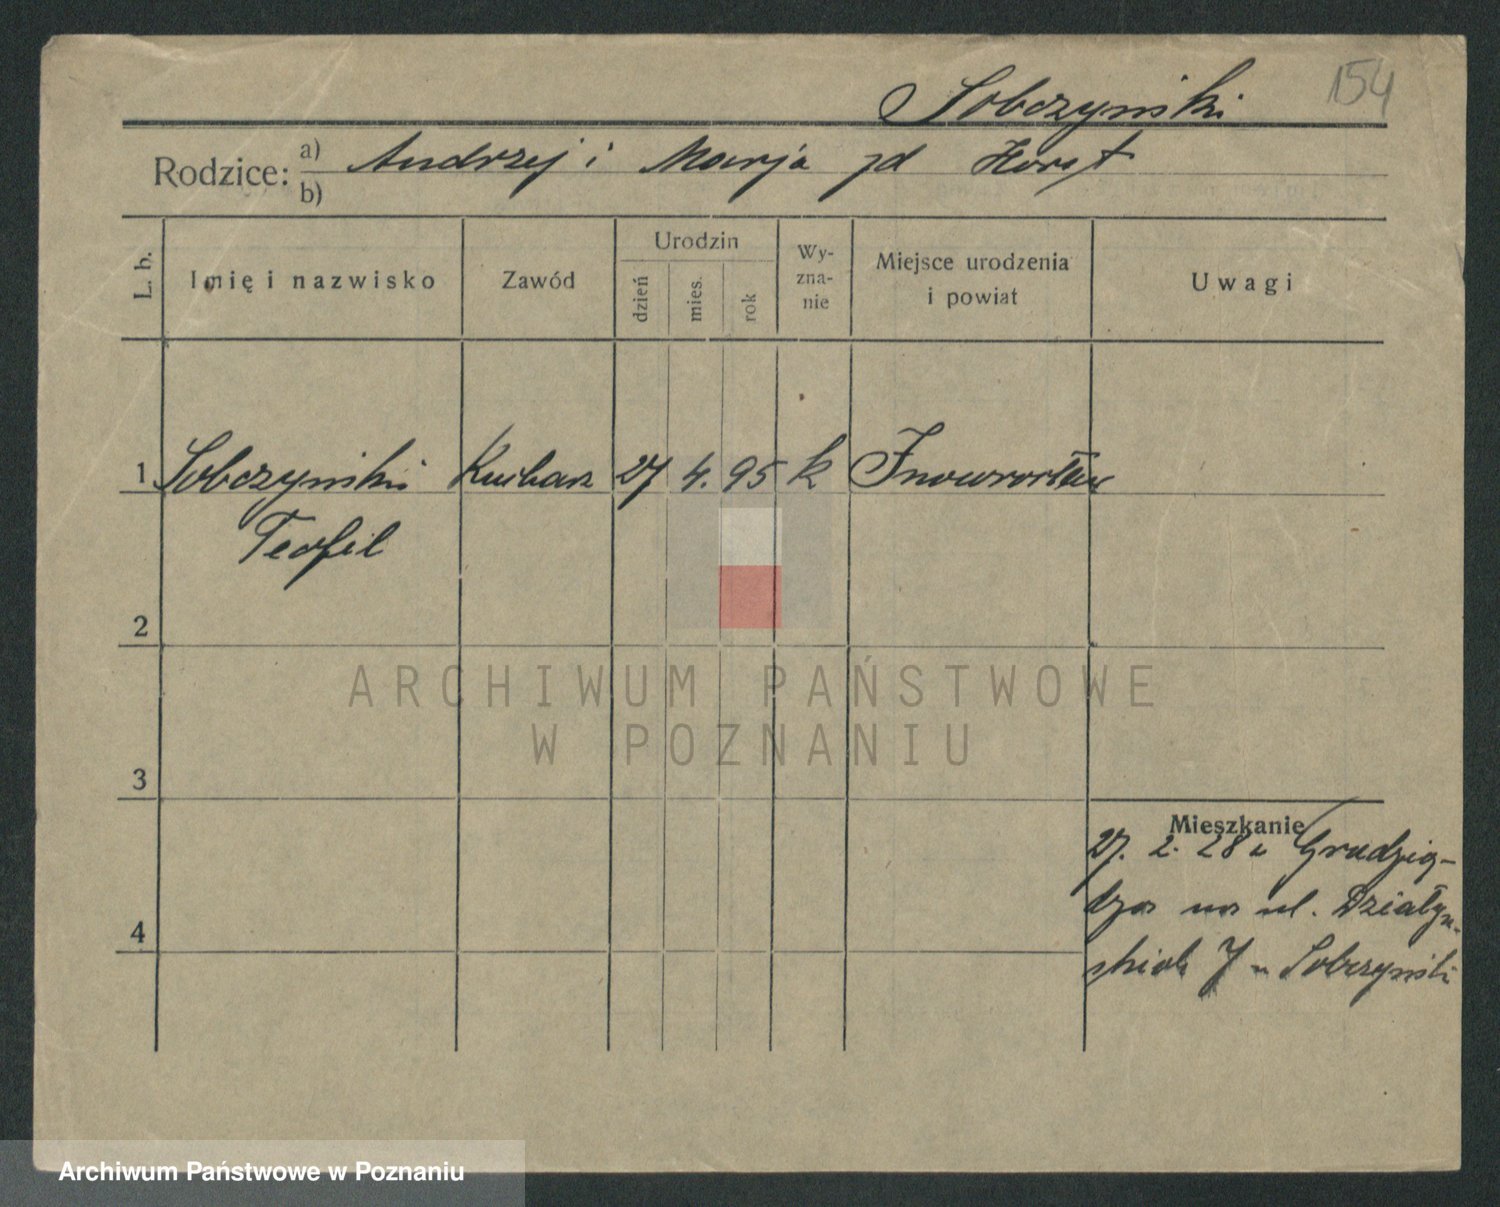 154
Sobczyński
Rodzice: a) Andrzej i Marja zd Horst
b)
L. b. Imię i nazwisko Zawód Urodzin dzień mies. rok Wy-zna-nie Miejsce urodzenia i powiat Uwagi
1 Sobczyński Kucharz 27 4. 95 k Inowrocław
Teofil
2
ARCHIWUM PAŃSTWOWE
W POZNANIU
3
Mieszkanie
27. 2. 28 z Grudzią-
dza na ul. Działyń-
skich 7 u Sobczyński
4
Archiwum Państwowe w Poznaniu